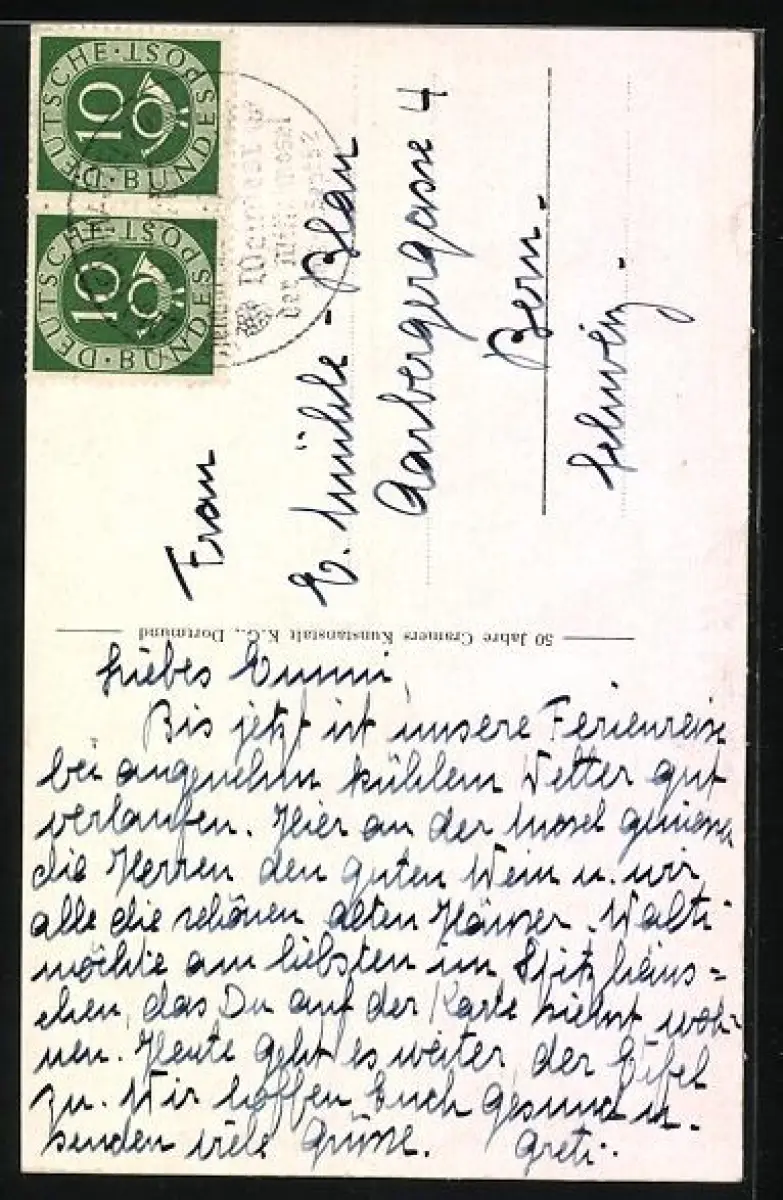 DEUTSCHE BUNDESPOST
10
DEUTSCHE BUNDESPOST
10
Weindorf
der Mittelmosel
Frau
E. Mühle-Blau
Aarbergergasse 4
Bern.
Schweiz.
50 Jahre Cramers Kunstanstalt K.G., Dortmund
Liebes Emmi,
Bis jetzt ist unsere Ferienreise
bei angenehm kühlem Wetter gut
verlaufen. Hier an der Mosel geniessen
die Herren den guten Wein u. wir
alle die schönen alten Häuser. Walti
möchte am liebsten im Spitzhäus=
chen, das Du auf der Karte siehst woh-
nen. Heute geht es weiter, der Eifel
zu. Wir hoffen Euch gesund u.
senden viele Grüsse. Greti.